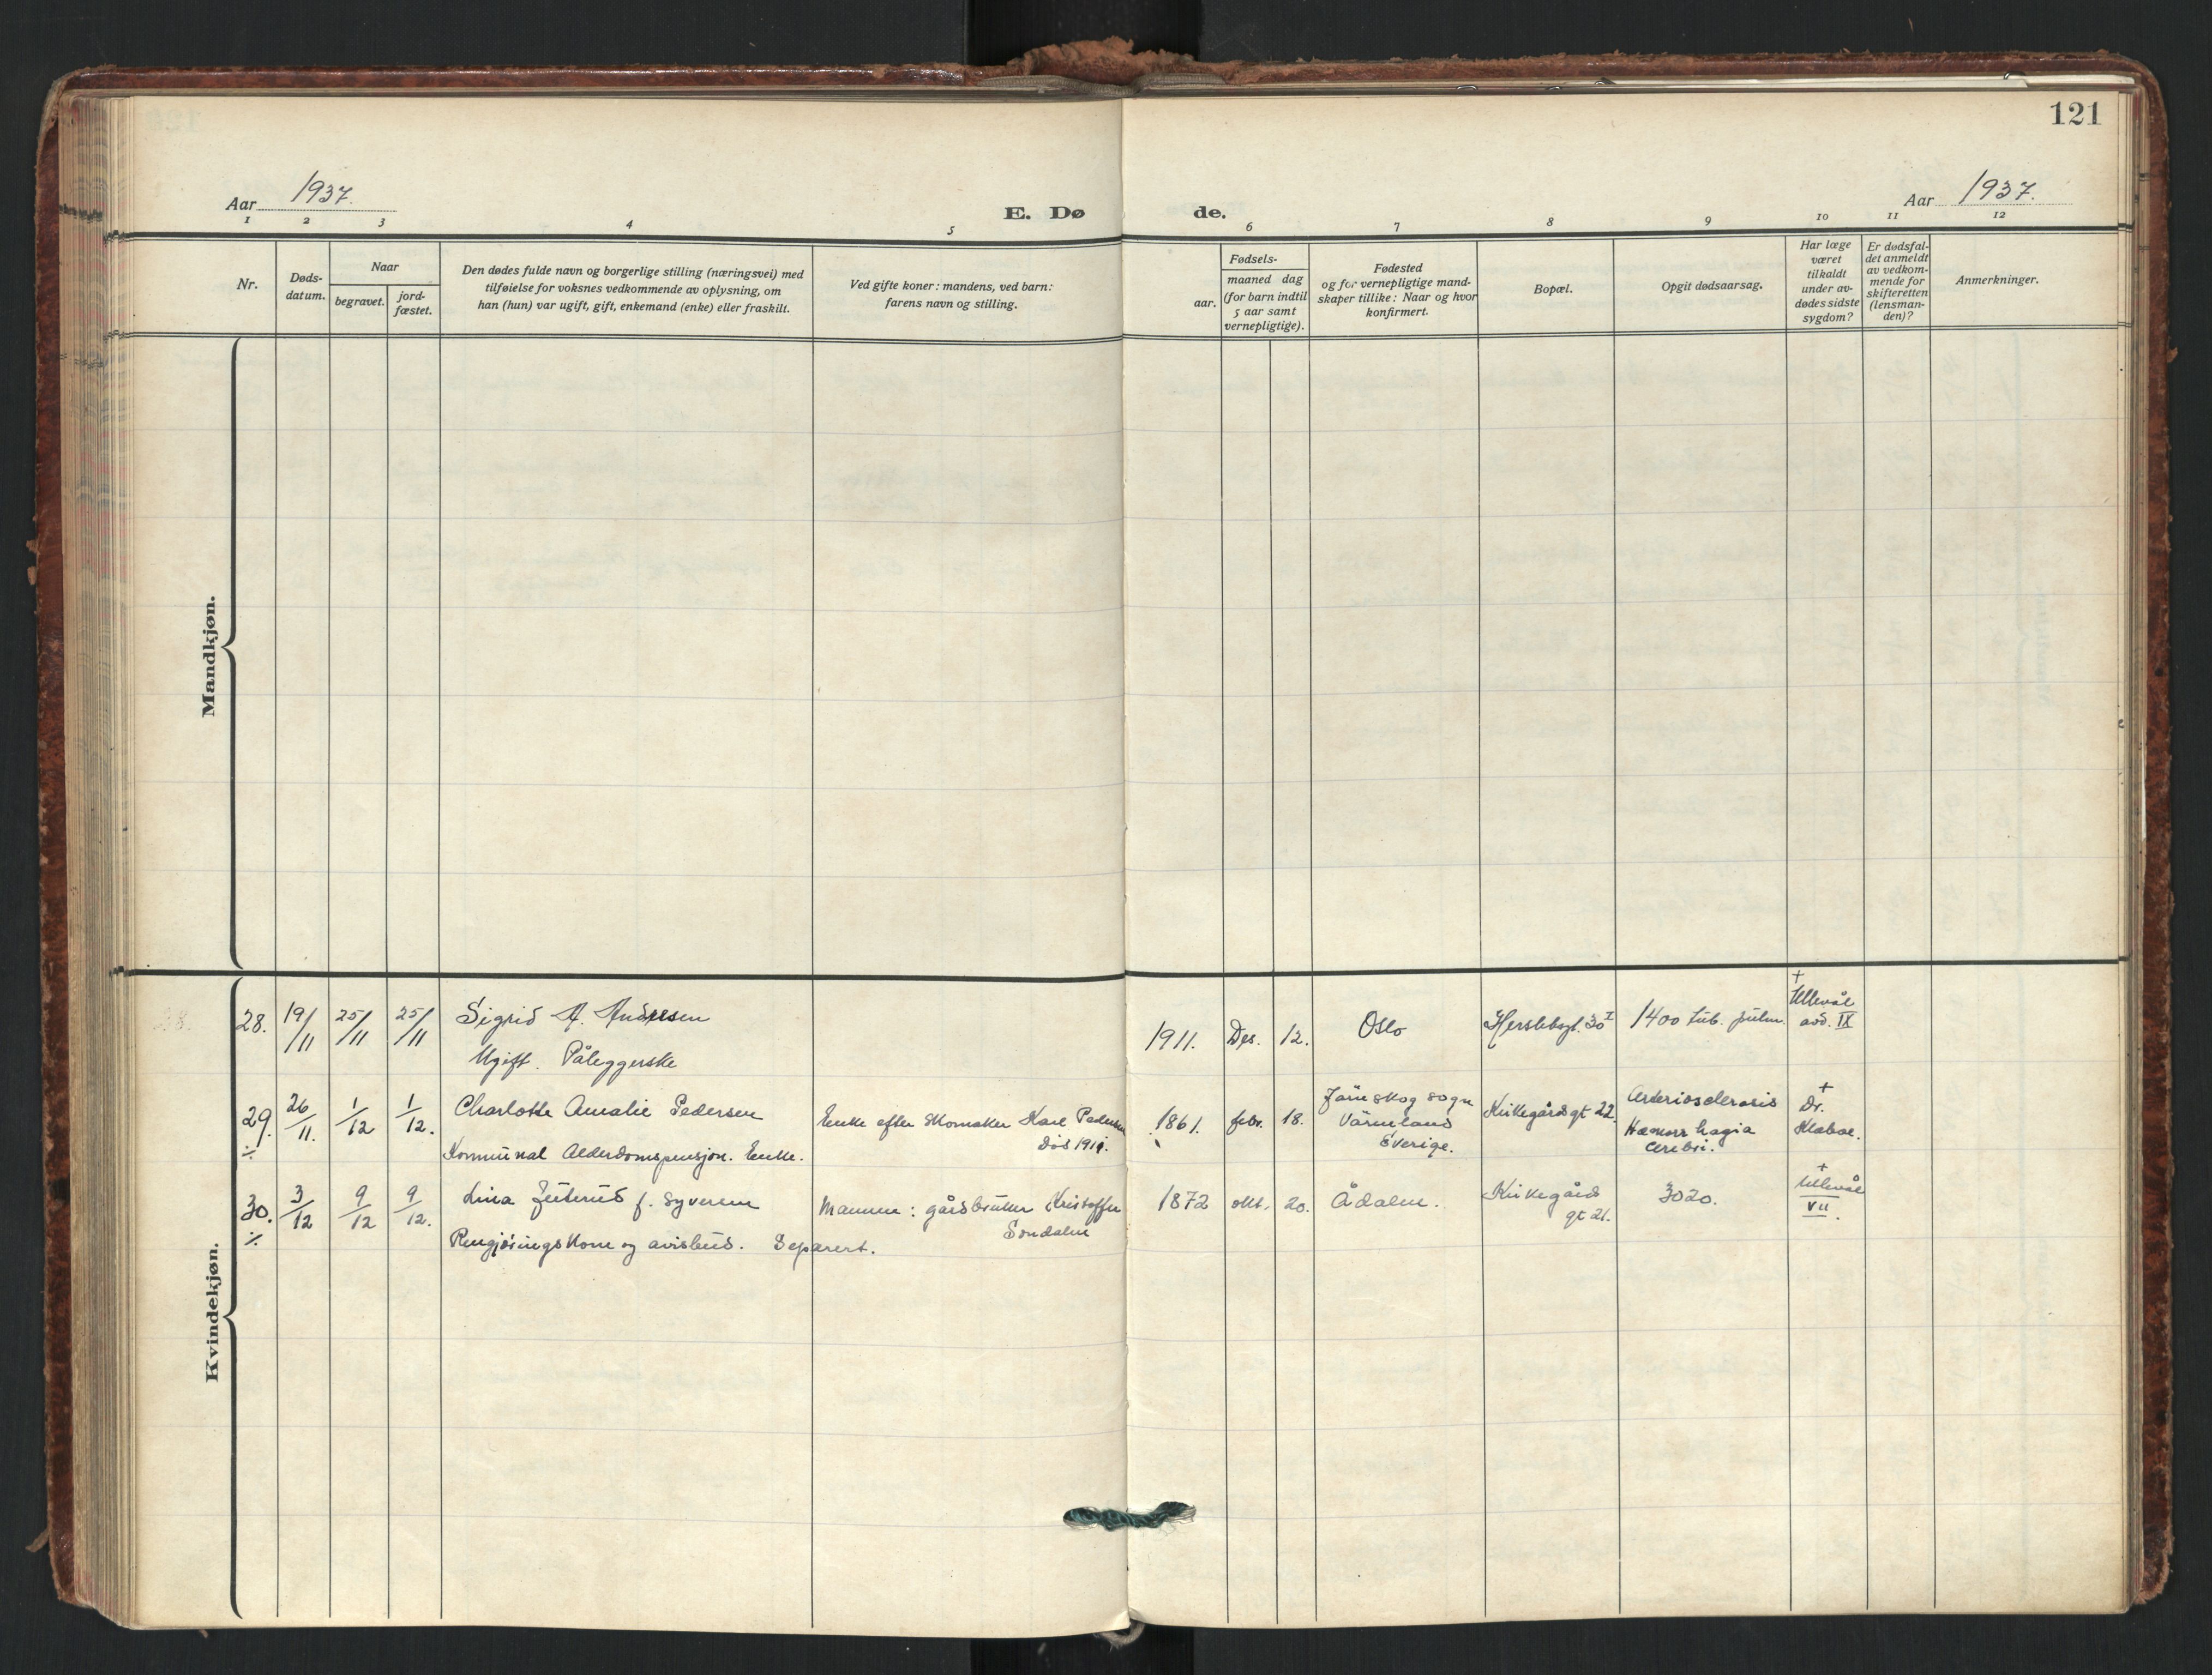 121
Aar 1937.
E. Dø de.
Aar 1937.
1 2 3 4 5 6 7 8 9 10 11 12
Nr.
Døds-
datum.
Naar
begravet.
jord-
fæstet.
Den dødes fulde navn og borgerlige stilling (næringsvei) med
tilføielse for voksnes vedkommende av oplysning, om
han (hun) var ugift, gift, enkemand (enke) eller fraskilt.
Ved gifte koner: mandens, ved barn:
farens navn og stilling.
aar.
Fødsels-
maaned dag
(for barn indtil
5 aar samt
vernepligtige).
Fødested
og for vernepligtige mand-
skaper tillike: Naar og hvor
konfirmert.
Bopæl.
Opgit dødsaarsag.
Har læge
været
tilkaldt
under av-
dødes sidste
sygdom?
Er dødsfal-
det anmeldt
av vedkom-
mende for
skifteretten
(lensman-
den)?
Anmerkninger.
Mandkjøn.
Kvindekjøn.
28.
28. 19/11 25/11 25/11 Sigrid A. Andresen
Ugift. Påleggerske
1911. Des. 12. Oslo
Herslebsgt. 30 I
1400 tub. pulm.
+
Ullevål
avd. IX
29. 26/11. 1/12 1/12. Charlotte Amalie Pedersen
÷
Kommunal Alderdomspensjon. Enke.
Enke efter Skomaker Karl Pedersen
Død 1911.
1861. febr. 18.
Järnskog sogn
Värmland
Sverige.
Kirkegårdsgt 22.
Arteriosclerosis
Hæmorrhagia
cerebri.
+
Dr.
Klaboe.
30. 3/12 9/12 9/12. Lina f. Syversen
÷
Rengjøringskone og avisbud. Separert.
Mannen: gårdbruker Kristoffer
1872 okt. 20. Ådalen.
Kirkegård
gt 21.
3020.
+
Ullevål
VII.